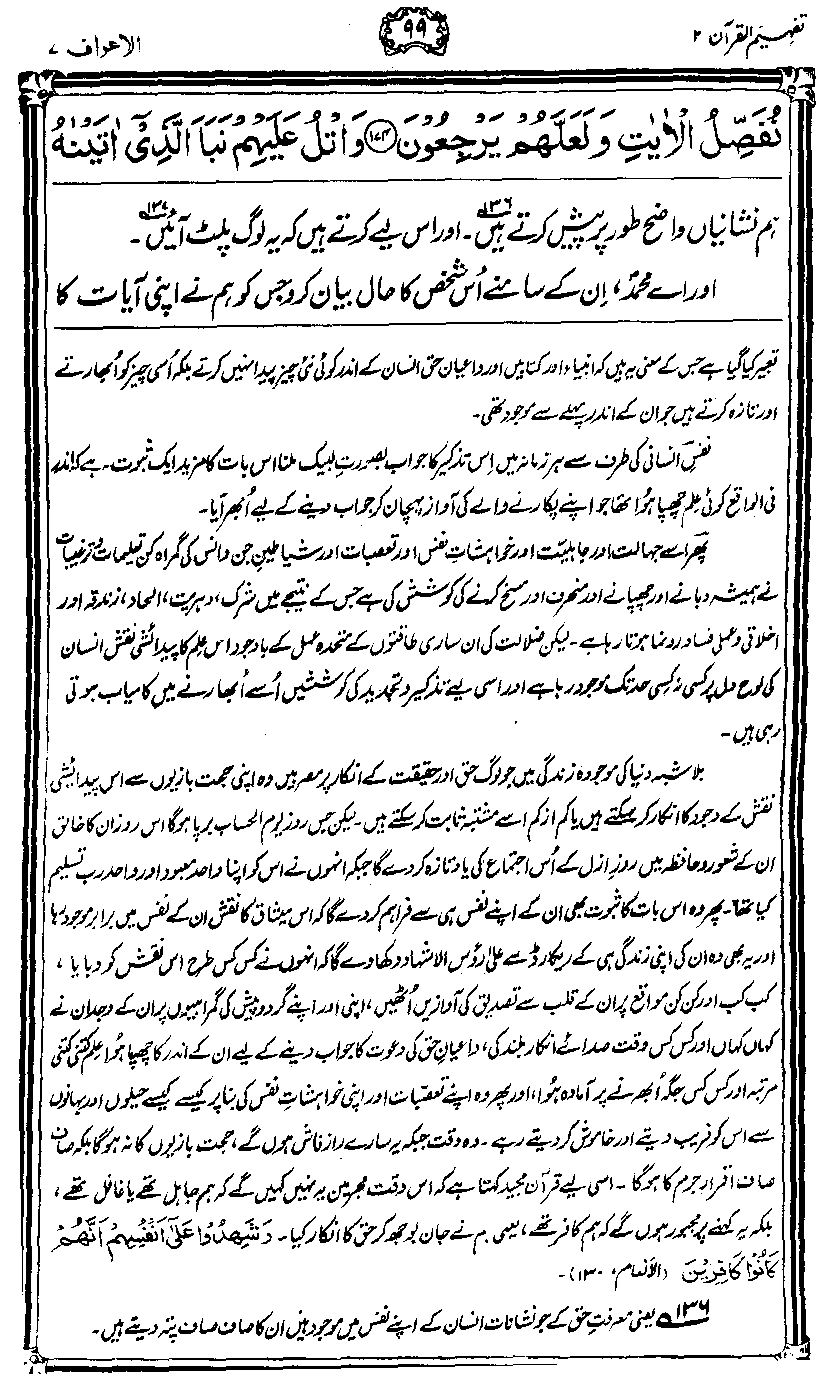 تفہیم القرآن ۲
۹۹
الاعراف ۷
نُفَصِّلُ الْاٰیٰتِ وَلَعَلَّهُمْ یَرْجِعُوْنَ ﴿۱۷۴﴾ وَاتْلُ عَلَیْهِمْ نَبَاَ الَّذِیْۤ اٰتَیْنٰهُ
ہم نشانیاں واضح طور پر پیش کرتے ہیں۱۳۶۔ اور اس لیے کرتے ہیں کہ یہ لوگ پلٹ آئیں۱۳۷۔
اور اے محمدؐ، اِن کے سامنے اُس شخص کا حال بیان کرو جس کو ہم نے اپنی آیات کا
تعبیر کیا گیا ہے جس کے معنی یہ ہیں کہ انبیاء اور کتابیں اور داعیانِ حق انسان کے اندر کوئی نئی چیز پیدا نہیں کرتے بلکہ اُسی چیز کو اُبھارتے
اور تازہ کرتے ہیں جو ان کے اندر پہلے سے موجود تھی۔
نفسِ انسانی کی طرف سے ہر زمانہ میں اِس تذکیر کا جواب بصورتِ لبیک ملنا اس بات کا مزید ایک ثبوت ہے کہ اندر
فی الواقع کوئی علم چھپا ہُوا تھا جو اپنے پکارنے والے کی آواز پہچان کر جواب دینے کے لیے اُبھر آیا۔
پھر اسے جہالت اور جاہلیّت اور خواہشاتِ نفس اور تعصبات اور شیاطینِ جن و انس کی گمراہ کن تعلیمات و ترغیبات
نے ہمیشہ دبانے اور چھپانے اور منحرف اور مسخ کرنے کی کوشش کی ہے جس کے نتیجے میں شرک، دہریت، الحاد، زندقہ اور
اخلاقی و عملی فساد رونما ہوتا رہا ہے۔ لیکن ضلالت کی ان ساری طاقتوں کے متحدہ عمل کے باوجود اس علم کا پیدائشی نقش انسان
کی لوحِ دل پر کسی نہ کسی حد تک موجود رہا ہے اور اسی لیے تذکیر و تجدید کی کوششیں اُسے اُبھارنے میں کامیاب ہوتی
رہی ہیں۔
بلاشبہ دنیا کی موجودہ زندگی میں جو لوگ حق اور حقیقت کے انکار پر مصر ہیں وہ اپنی حجت بازیوں سے اس پیدائشی
نقش کے وجود کا انکار کر سکتے ہیں یا کم از کم اسے مشتبہ ثابت کر سکتے ہیں۔ لیکن جس روز یوم الحساب برپا ہوگا اس روز ان کا خالق
ان کے شعور و حافظہ میں روزِ ازل کے اُس اجتماع کی یاد تازہ کر دے گا جبکہ انہوں نے اس کو اپنا واحد معبود اور واحد رب تسلیم
کیا تھا۔ پھر وہ اس بات کا ثبوت بھی ان کے اپنے نفس ہی سے فراہم کر دے گا کہ اس میثاق کا نقش ان کے نفس میں برابر موجود رہا
اور یہ بھی وہ ان کی اپنی زندگی ہی کے ریکارڈ سے علیٰ رؤس الاشہاد دکھا دے گا کہ انہوں نے کس کس طرح اس نقش کو دبایا،
کب کب اور کن کن مواقع پر ان کے قلب سے تصدیق کی آوازیں اُٹھیں، اپنی اور اپنے گردوپیش کی گمراہیوں پر ان کے وجدان نے
کہاں کہاں اور کس کس وقت صدائے انکار بلند کی، داعیانِ حق کی دعوت کا جواب دینے کے لیے ان کے اندر کا چھپا ہُوا علم کتنی کتنی
مرتبہ اور کس کس جگہ اُبھرنے پر آمادہ ہُوا، اور پھر وہ اپنے تعصّبات اور اپنی خواہشاتِ نفس کی بنا پر کیسے کیسے حیلوں اور بہانوں
سے اس کو فریب دیتے اور خاموش کر دیتے رہے۔ وہ وقت جبکہ یہ سارے راز فاش ہوں گے، حجت بازیوں کا نہ ہوگا بلکہ صاف
صاف اقرارِ جرم کا ہوگا۔ اسی لیے قرآن مجید کہتا ہے کہ اس وقت مجرمین یہ نہیں کہیں گے کہ ہم جاہل تھے یا غافل تھے،
بلکہ یہ کہنے پر مجبور ہوں گے کہ ہم کافر تھے، یعنی ہم نے جان بوجھ کر حق کا انکار کیا۔ وَشَهِدُوْا عَلٰٓى اَنْفُسِهِمْ اَنَّهُمْ
كَانُوْا كَافِرِيْنَ (الانعام، ۱۳۰)۔
۱۳۶ یعنی معرفتِ حق کے جو نشانات انسان کے اپنے نفس میں موجود ہیں ان کا صاف صاف پتہ دیتے ہیں۔